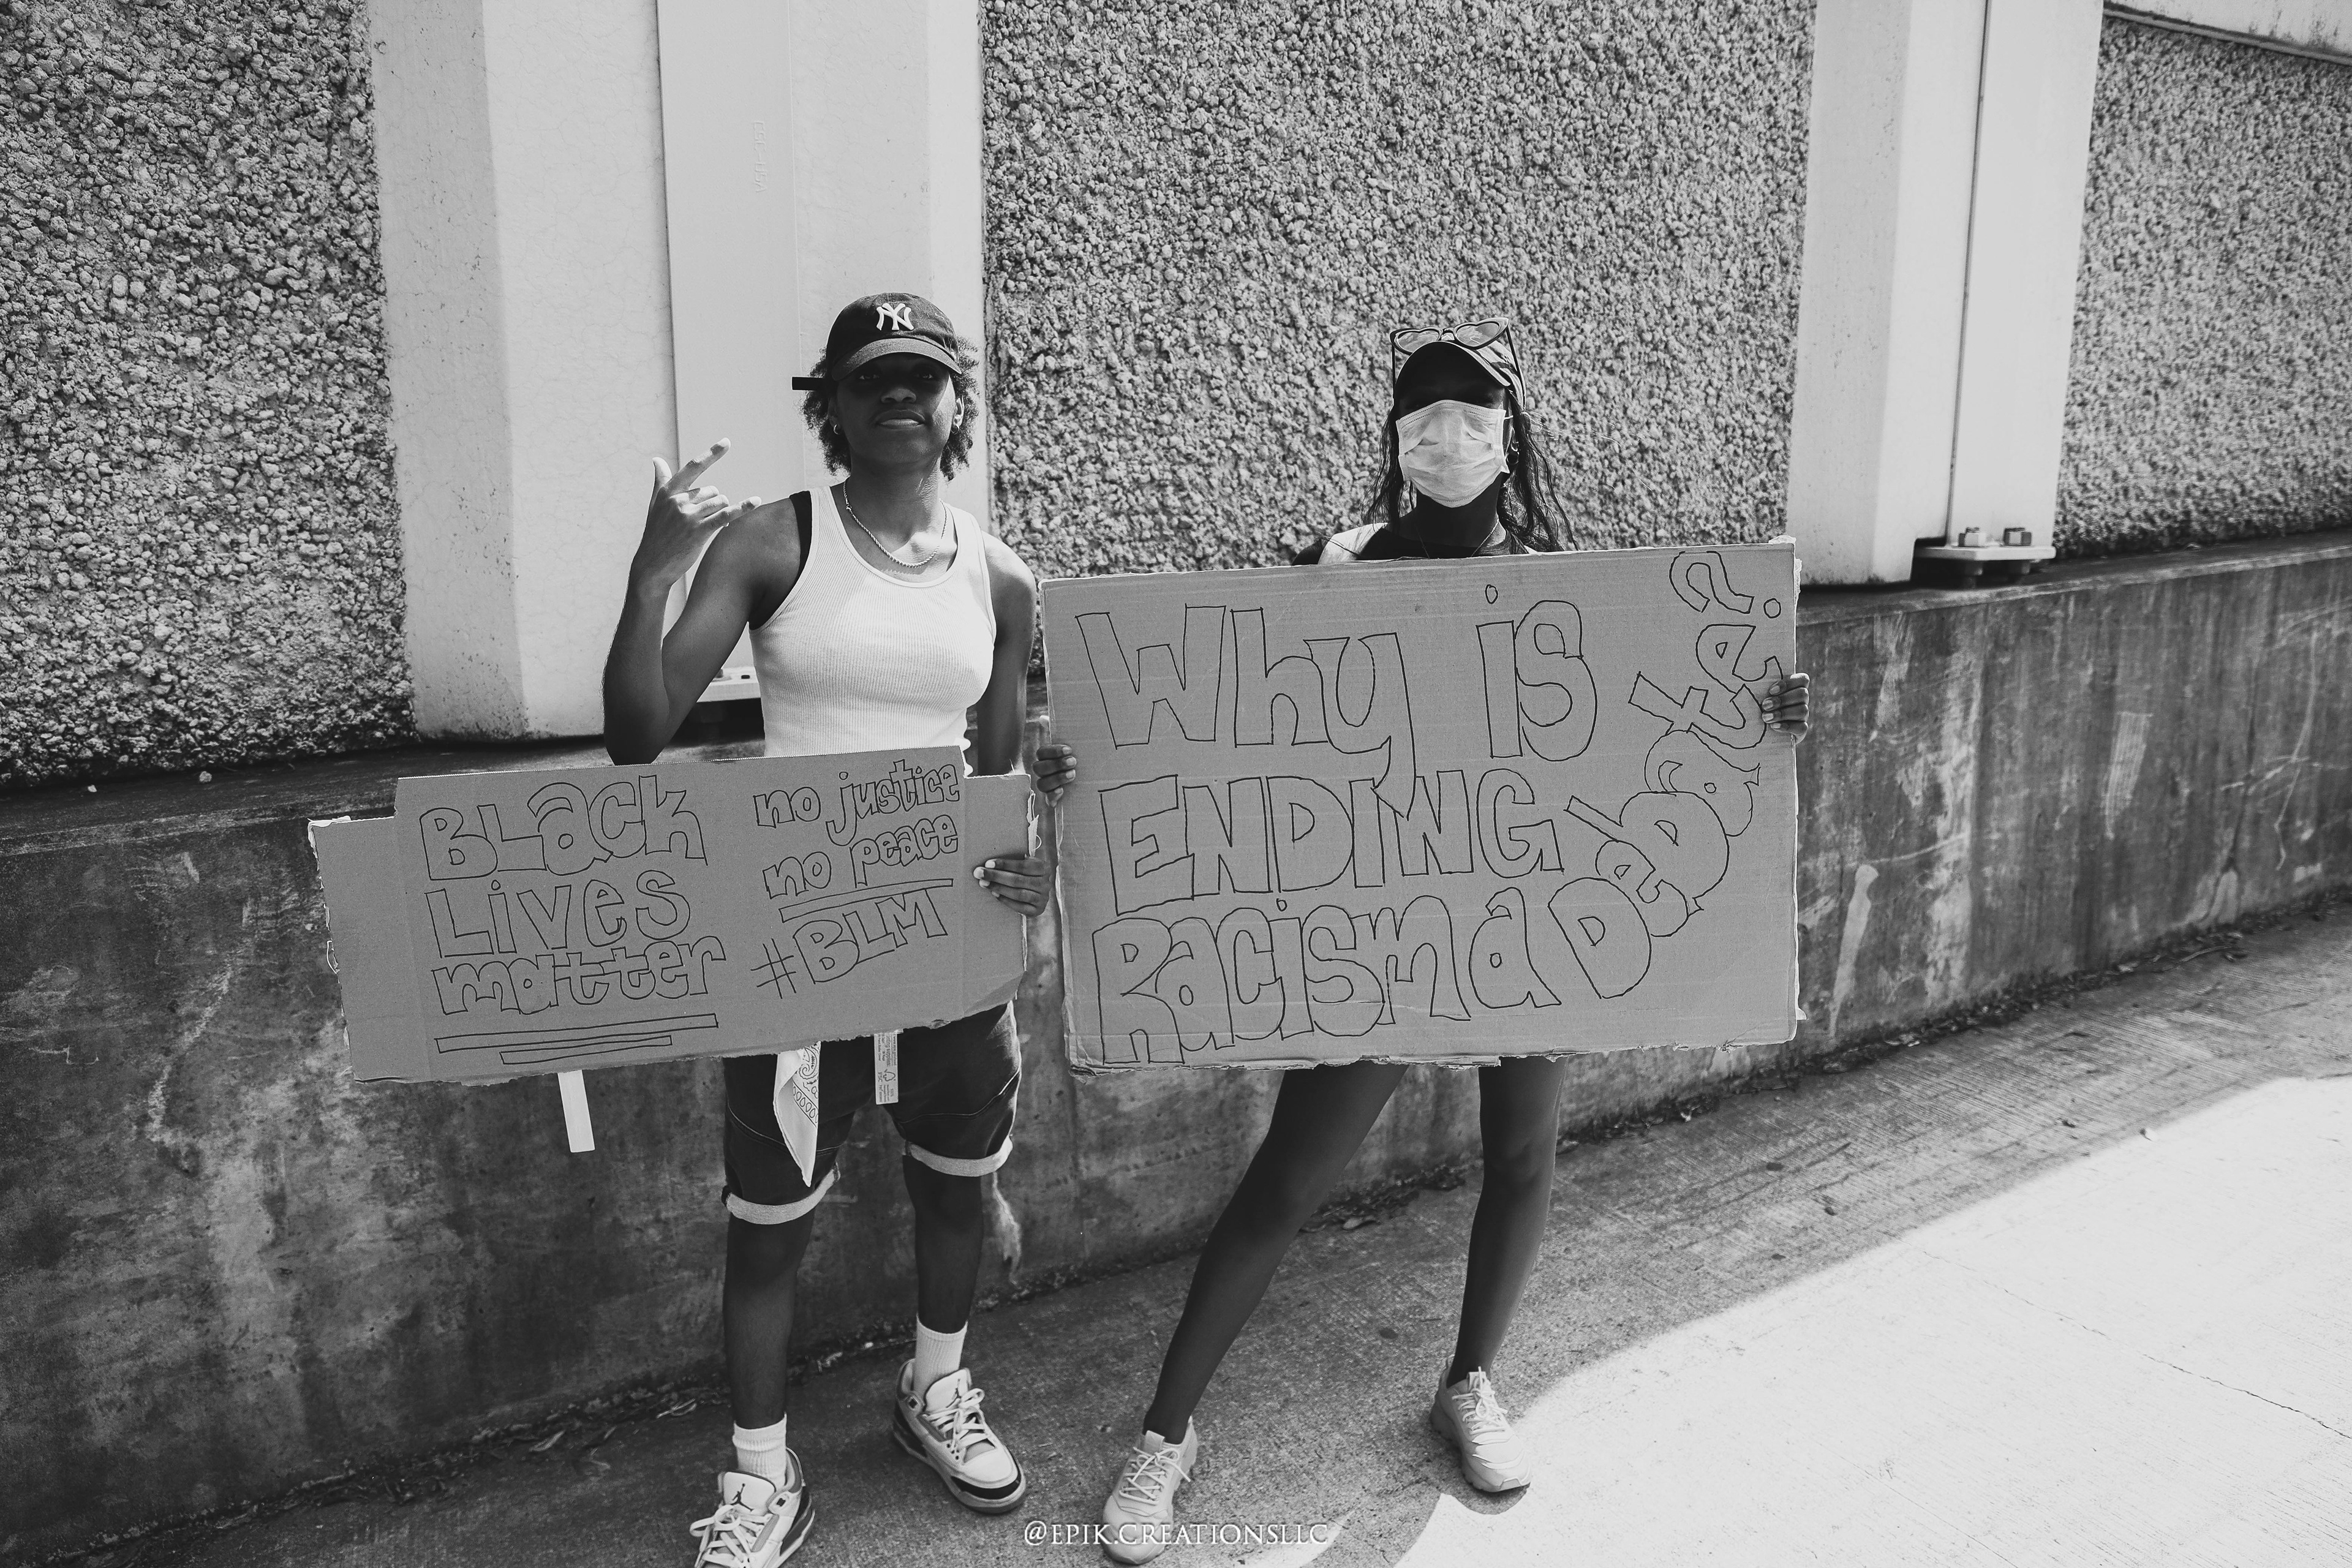 NY
BLack
Lives
matter
no justice
no peace
#BLM
Why is
ENDING
Racism a Debate?
@EPIK.CREATIONSLLC